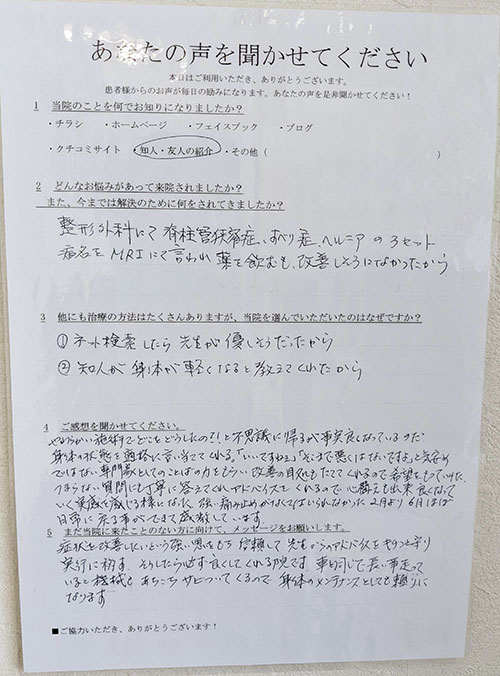 あなたの声を聞かせてください
本日はご利用いただき、ありがとうございます。
患者様からのお声が毎日の励みになります。あなたの声を是非聞かせてください！
1 当院のことを何でお知りになりましたか？
・チラシ ・ホームページ ・フェイスブック ・ブログ
・クチコミサイト ・知人・友人の紹介 ・その他（ ）
2 どんなお悩みがあって来院されましたか？
また、今までは解決のために何をされてきましたか？
整形外科にて脊柱管狭窄症、すべり症、ヘルニアの3セット
病名をMRIにて言われ薬を飲むも、改善しそうになかったから
3 他にも治療の方法はたくさんありますが、当院を選んでいただいたのはなぜですか？
① ネット検索したら先生が優しそうだったから
② 知人が身体が軽くなると教えてくれたから
4 ご感想を聞かせてください。
やわらかい施術でどこをどうしたの?!と不思議に帰るが事実良くなっているのだ
身体の状態を適格に言い当ててくれる。「いいですねぇ」「そこまで悪くはないですよ」と気休め
ではない専門家としてのことばの力をもらい改善の目処もたててくれるので希望をもっていけた
つまらない質問にも丁寧に答えてくれアドバイスもくれるので心構えも出来良くなって
いく実感を感じる様になった。強い痛み止がなくてはいられなかった2月より6月はほぼ
日常に戻る事ができて感謝しています
5 まだ当院に来たことのない方に向けて、メッセージをお願いします。
症状を改善したいという強い思いをもち信頼して先生からのアドバイスをキチンと守り
実行に移す。そうしたら必ず良くしてくれる院です。車と同じで長い事走って
いると機械もあちこちサビついてくるので身体のメンテナンスとしても頼りに
なります
■ご協力いただき、ありがとうございます！